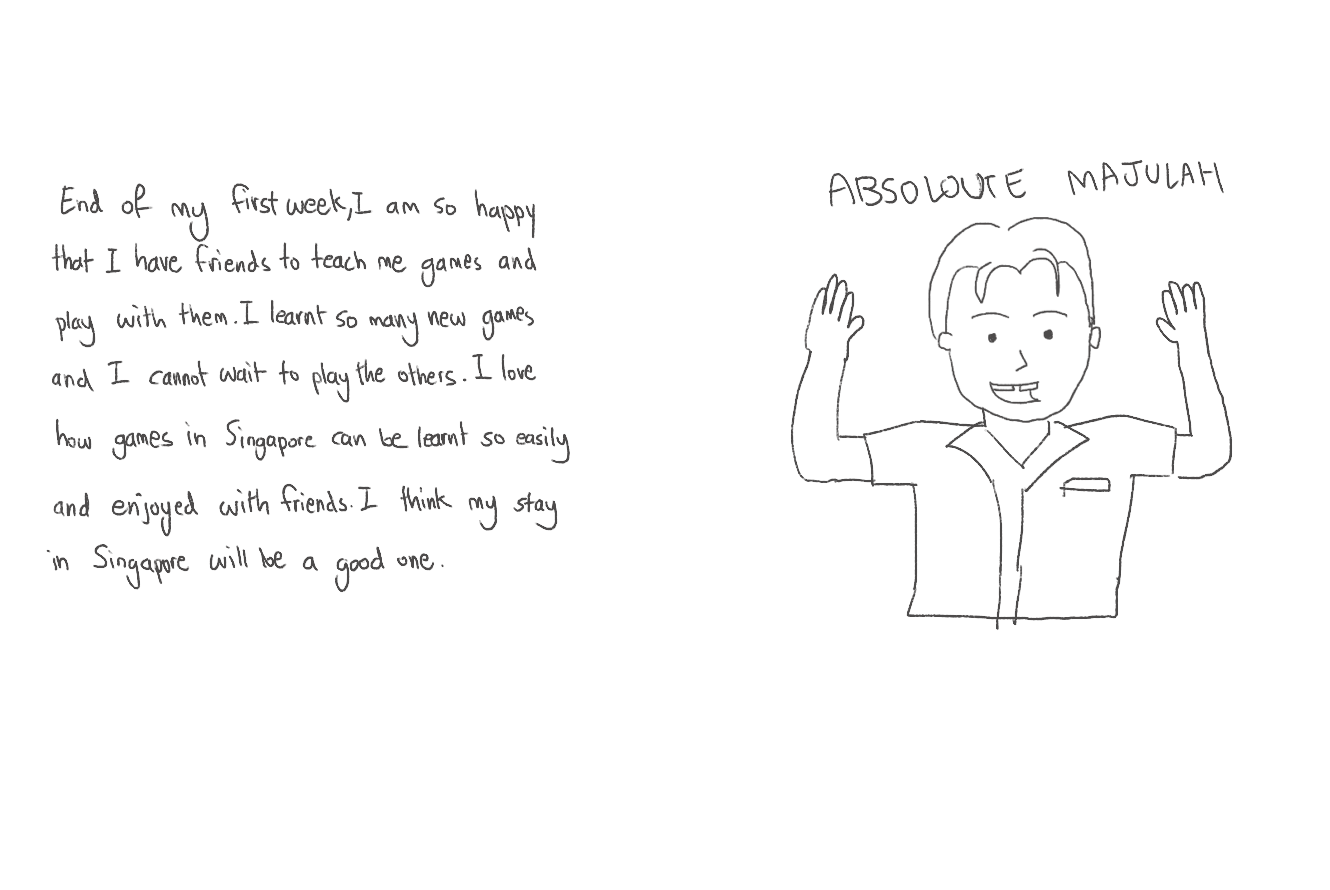 End of my first week, I am so happy
that I have friends to teach me games and
play with them. I learnt so many new games
and I cannot wait to play the others. I love
how games in Singapore can be learnt so easily
and enjoyed with friends. I think my stay
in Singapore will be a good one.
ABSOLOUTE MAJULAH